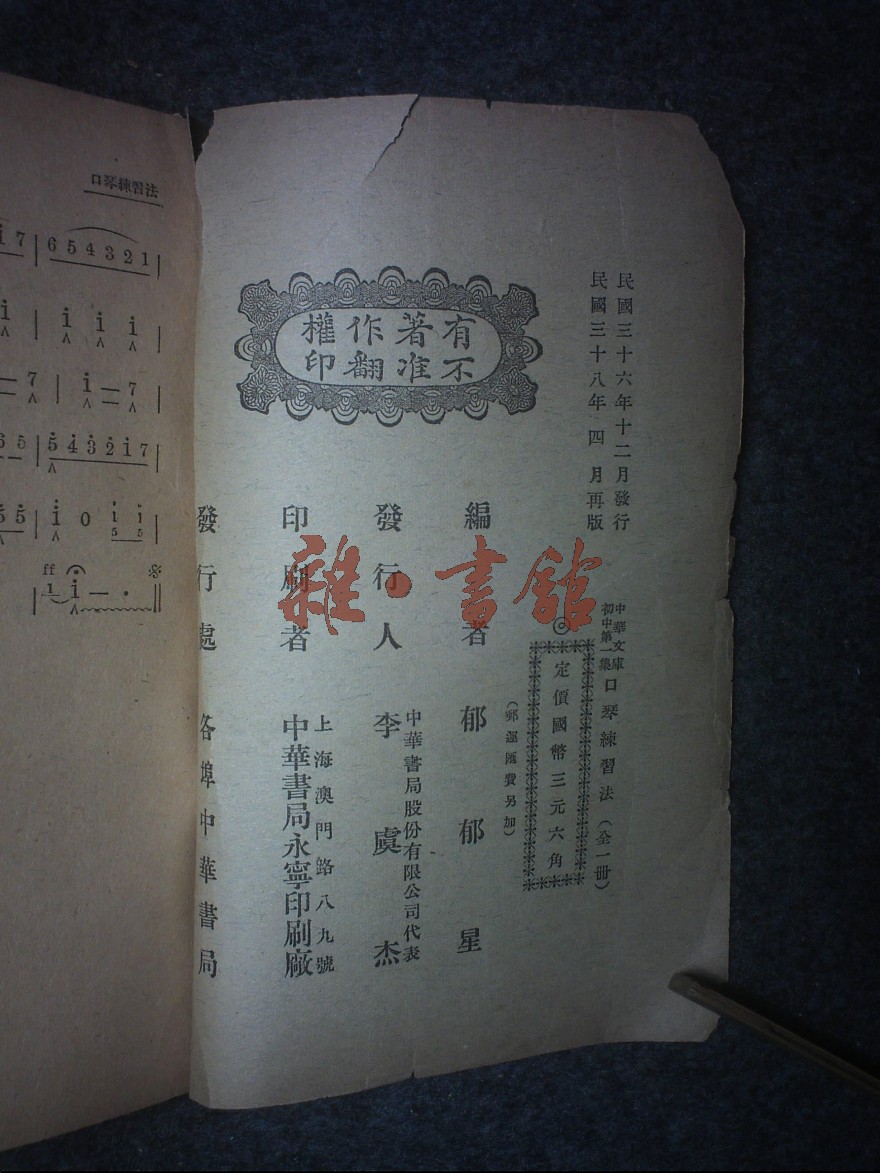 民國三十六年十二月發行
民國三十八年四月再版
中華文庫
初中第一集
口琴練習法（全一冊）
◎
定價國幣三元六角
（郵運匯費另加）
有著作權
不准翻印
編者 郁郁星
發行人 中華書局股份有限公司代表
李虞杰
印刷者 上海澳門路八九號
中華書局永寧印刷廠
發行處 各埠中華書局
雜·書館
口琴練習法
i 7 | 6 5 4 3 2 1 |
i | i i i |
— 7 | i — 7 |
0 6 5 | 5 4 3 2 i 7 |
5 5 | i 0 i i |
5 5
ff
| 1 i — · ||